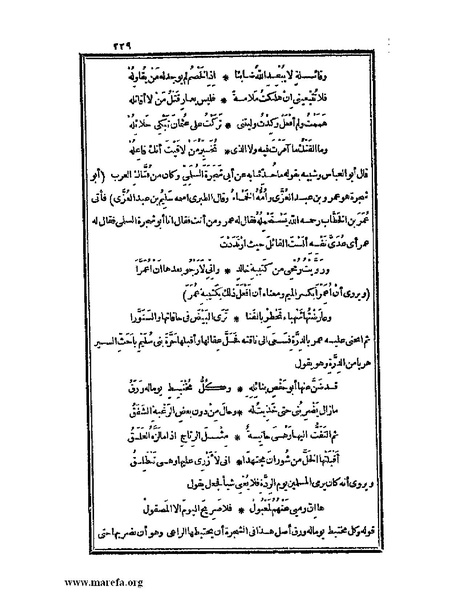 ٢٢٩
وقائلة لا يُبعِد اللهُ ضابئا * اذا الخَصْم لم يوجد له مَن يُقاوِلُهْ
فلا تُتْبِعيني اِن هلكتُ مَلامةً * فليس بعارٍ قتلُ مَن لا أُقاتلُهْ
هَمَمتُ ولم أفعَلْ وكِدْتُ وليتنى * تركتُ على عثمانَ تبكى حلائلُهْ
وما الفتكُ ما آمرتَ فيه ولا الذى * تُخبِّر مَن لاقيتَ أنك فاعلُهْ
قال أبو العباس وشبيه بقوله ما حُدثنا به عن أبى شجرة السلمى وكان من فُتَّاك العرب (أبو
شجرة هو عمرو بن عبد العزَّى وأمُّه الخنساءُ وقال الطبرى اسمه سليم بن عبد العزى) فأتى
عُمَرَ بن الخطَّاب رحمه الله يستحمله فقال له عمر ومن أنت فقال انا أبو شجرة السلمى فقال له
عمر أى عُدَىَّ نفسه ألست القائل حيث ارتددت
ورَوَّيتُ رُمحى من كتيبة خالد * وانى لأرجو بعدها أن أُعمَّرا
(ويروى أن أُعمِّرَ ابكسر الميم ومعناه أن أفعل ذلك بكتيبة عمر)
وعارضتُها شهباءَ تخطِر بالقنا * ترى البَيْضَ فى حافاتها والسنوَّرا
ثم انحنى عليه عمر بالدِّرَّة فسعى الى ناقته فحلَّ عقالها وأقبلها حرَّة بنى سُليم بأحث السير
هربا من الدرة وهو يقول
قد ضنَّ عنها أبو حفص بنائله * وكلُّ مختبِط يوما له ورَقُ
مازال يضرِبُنى حتى خذيتُ له * وحال من دون بعض الرَّغبة الشفَقُ
ثم التفتُّ اليها وهى حانية * مثل الرتاج اذا ما لزَّه الغلَقُ
أقبلتُها الخَلَّ من شَوْران مجتهدًا * انى لأزرِى عليها وهى تنطلقُ
ويروى أنه كان يرمى المسلمين يوم الردة فلا يُغنى شيأ فجعل يقول
ها اِنّ رميى عنهمُ لمعبولْ * فلا صريحَ اليومَ الا المصقولْ
قوله وكل مختبط يوما له ورق أصل هذا فى الشجرة أن يختبطها الراعى وهو أن يضربها حتى
www.marefa.org